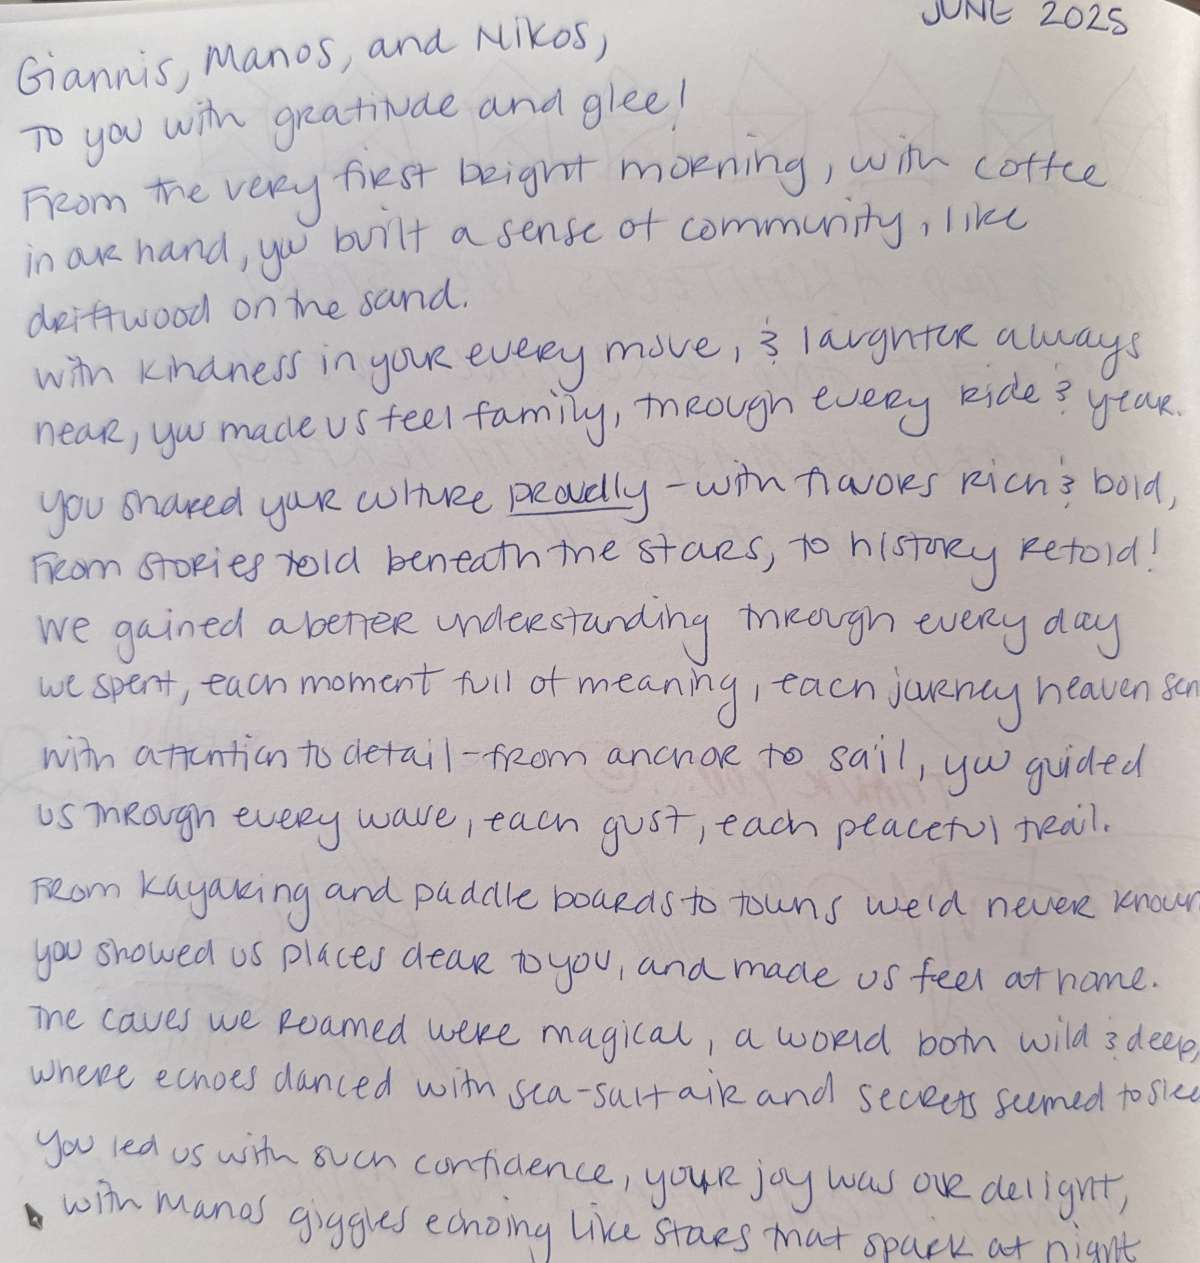 JUNE 2025
Giannis, Manos, and Nikos,
To you with gratitude and glee!
From the very first bright morning, with coffee
in our hand, you built a sense of community, like
driftwood on the sand.
with kindness in your every move, & laughter always
near, you made us feel family, through every ride & year.
you shared your culture proudly - with flavors rich & bold,
From stories told beneath the stars, to history retold!
we gained a better understanding through every day
we spent, each moment full of meaning, each journey heaven sen
with attention to detail - from anchor to sail, you guided
us through every wave, each gust, each peaceful trail.
From kayaking and paddle boards to towns we'd never known
you showed us places dear to you, and made us feel at home.
The caves we roamed were magical, a world both wild & deep,
where echoes danced with sea-salt air and secrets seemed to slee
You led us with such confidence, your joy was our delight,
with Manos giggles echoing like stars that spark at night